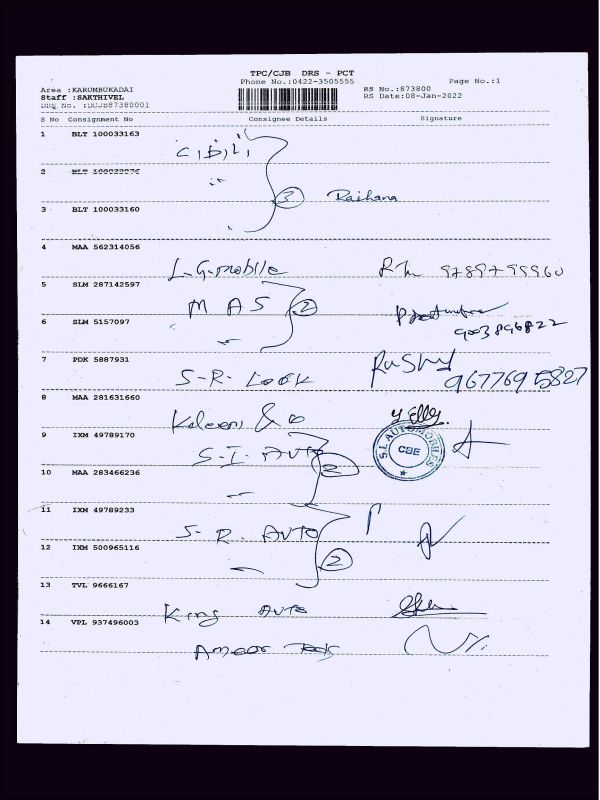 TPC/CJB DRS - PCT
Phone No.:0422-3505555
Page No.:1
Area :KARUMBUKADAI
RS No.:873800
Staff :SAKTHIVEL
RS Date:08-Jan-2022
DRS No. :DCJB87380001
S No Consignment No Consignee Details Signature
1 BLT 100033163
C, B, L,
2
3 Raihana
3 BLT 100033160
4 MAA 562314056
L.G. mobile 9789799960
5 SLM 287142597
M A S 2
6 SLM 5157097
9003896822
7 PDK 5887931
S-R- Look
9677695827
8 MAA 281631660
& co
9 IXM 49789170
S.I. AUTOMOBILES
CBE
S-I- AUTO 2
10 MAA 283466236
11 IXM 49789233
S-R. AUTO
12 IXM 500965116
2
13 TVL 9666167
King AUTO
14 VPL 937496003
Ameer